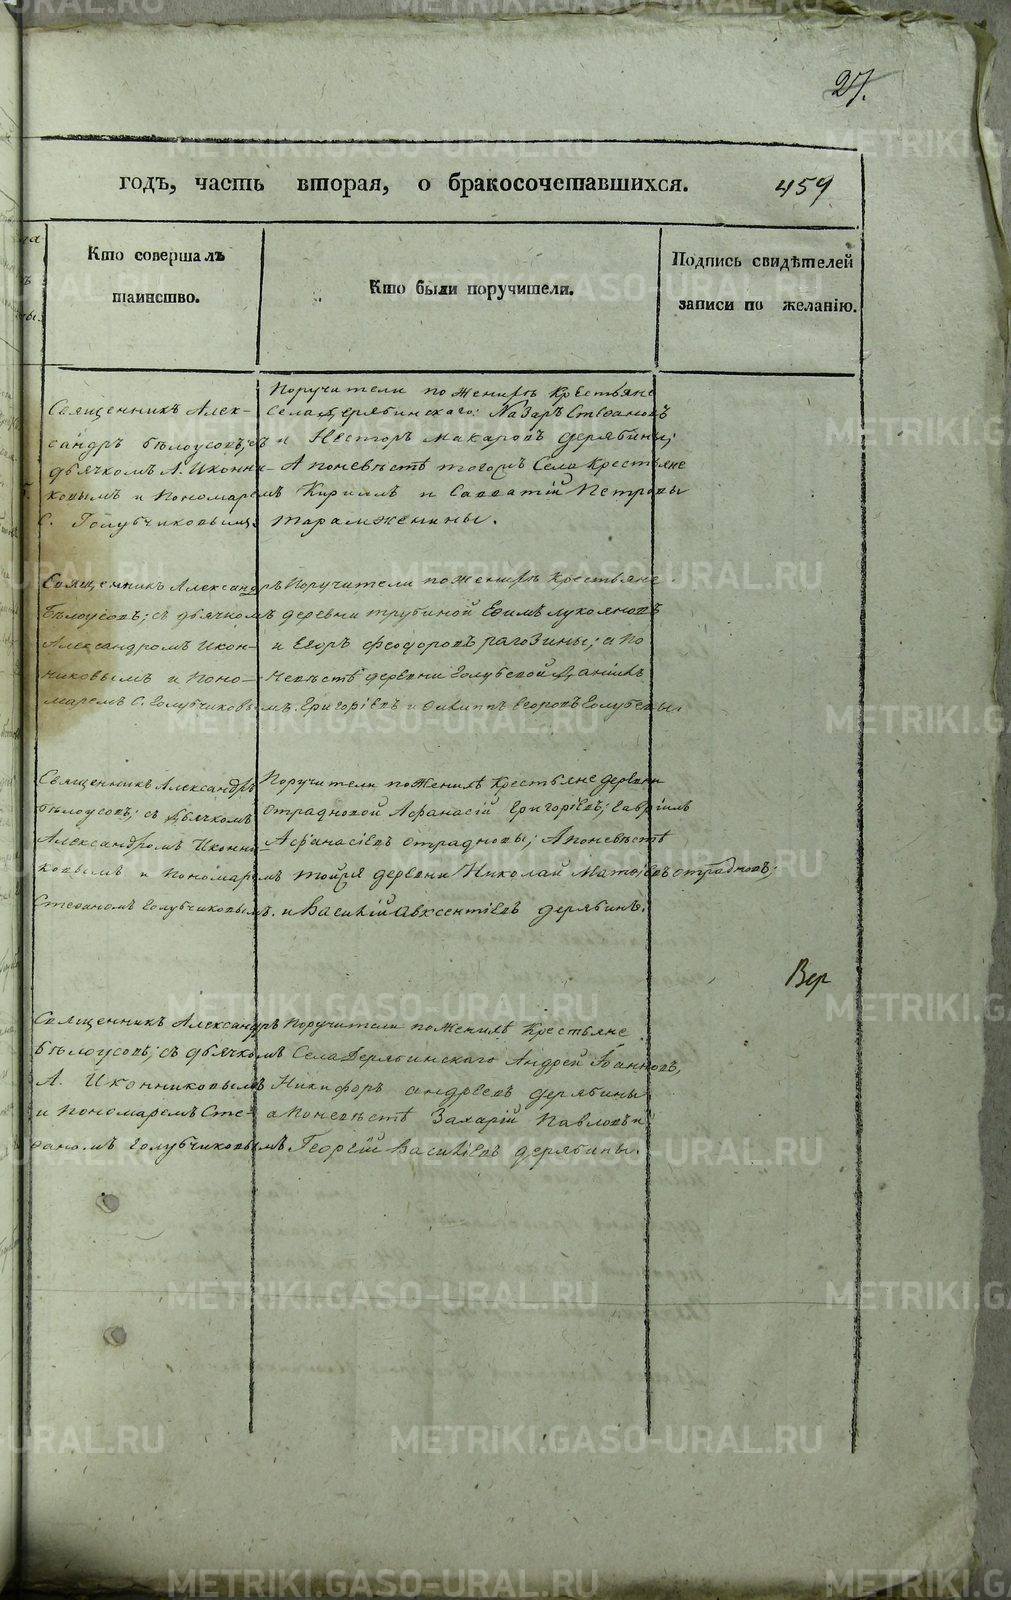 27.
годъ, часть вторая, о бракосочетавшихся. 459
Кто совершалъ
таинство.
Кто были поручители.
Подпись свидѣтелей
записи по желанію.
Священникъ Алек-
сандръ Бѣлоусовъ; съ
дьячкомъ А. Иконни-
ковымъ и Пономаремъ
С. Голубчиковымъ.
Поручители по женихѣ Крестьяне
Села Дерябинскаго: Назаръ Стефановъ
и Несторъ Макаровъ Дерябины;
А по невѣстѣ тогожъ Села Крестьяне
Кирилъ и Савватій Петровы
Тарамженины.
Священникъ Александръ
Бѣлоусовъ; съ дьячкомъ
Александромъ Икон-
никовымъ и Поно-
маремъ С. Голубчиковымъ.
Поручители по женихѣ Крестьяне
деревни Трубиной Ефимъ Лукояновъ
и Егоръ Феодоровъ Рагозины; а по
невѣстѣ деревни Голубевой Даніилъ
Григорьевъ и Филиппъ Егоровъ Голубевы.
Священникъ Александръ
Бѣлоусовъ; съ Дьячкомъ
Александромъ Иконни-
ковымъ и Пономаремъ
Стефаномъ Голубчиковымъ.
Поручители по женихѣ Крестьяне деревни
Отрадновой Афанасій Григоріевъ; Гавріилъ
Афанасіевъ Отрадновы; А по невѣстѣ
тойжъ деревни Николай Матфіевъ Отрадновъ;
и Василій Авксентіевъ Дерябинъ.
Вер
Священникъ Александръ
Бѣлоусовъ; съ дьячкомъ
А. Иконниковымъ
и Пономаремъ Сте-
фаномъ Голубчиковымъ.
Поручители по женихѣ Крестьяне
Села Дерябинскаго Андрей Іоанновъ,
Никифоръ Андреевъ Дерябины
а по невѣстѣ Захарій Павловъ и
Георгій Василіевъ Дерябины.
METRIKI.GASO-URAL.RU